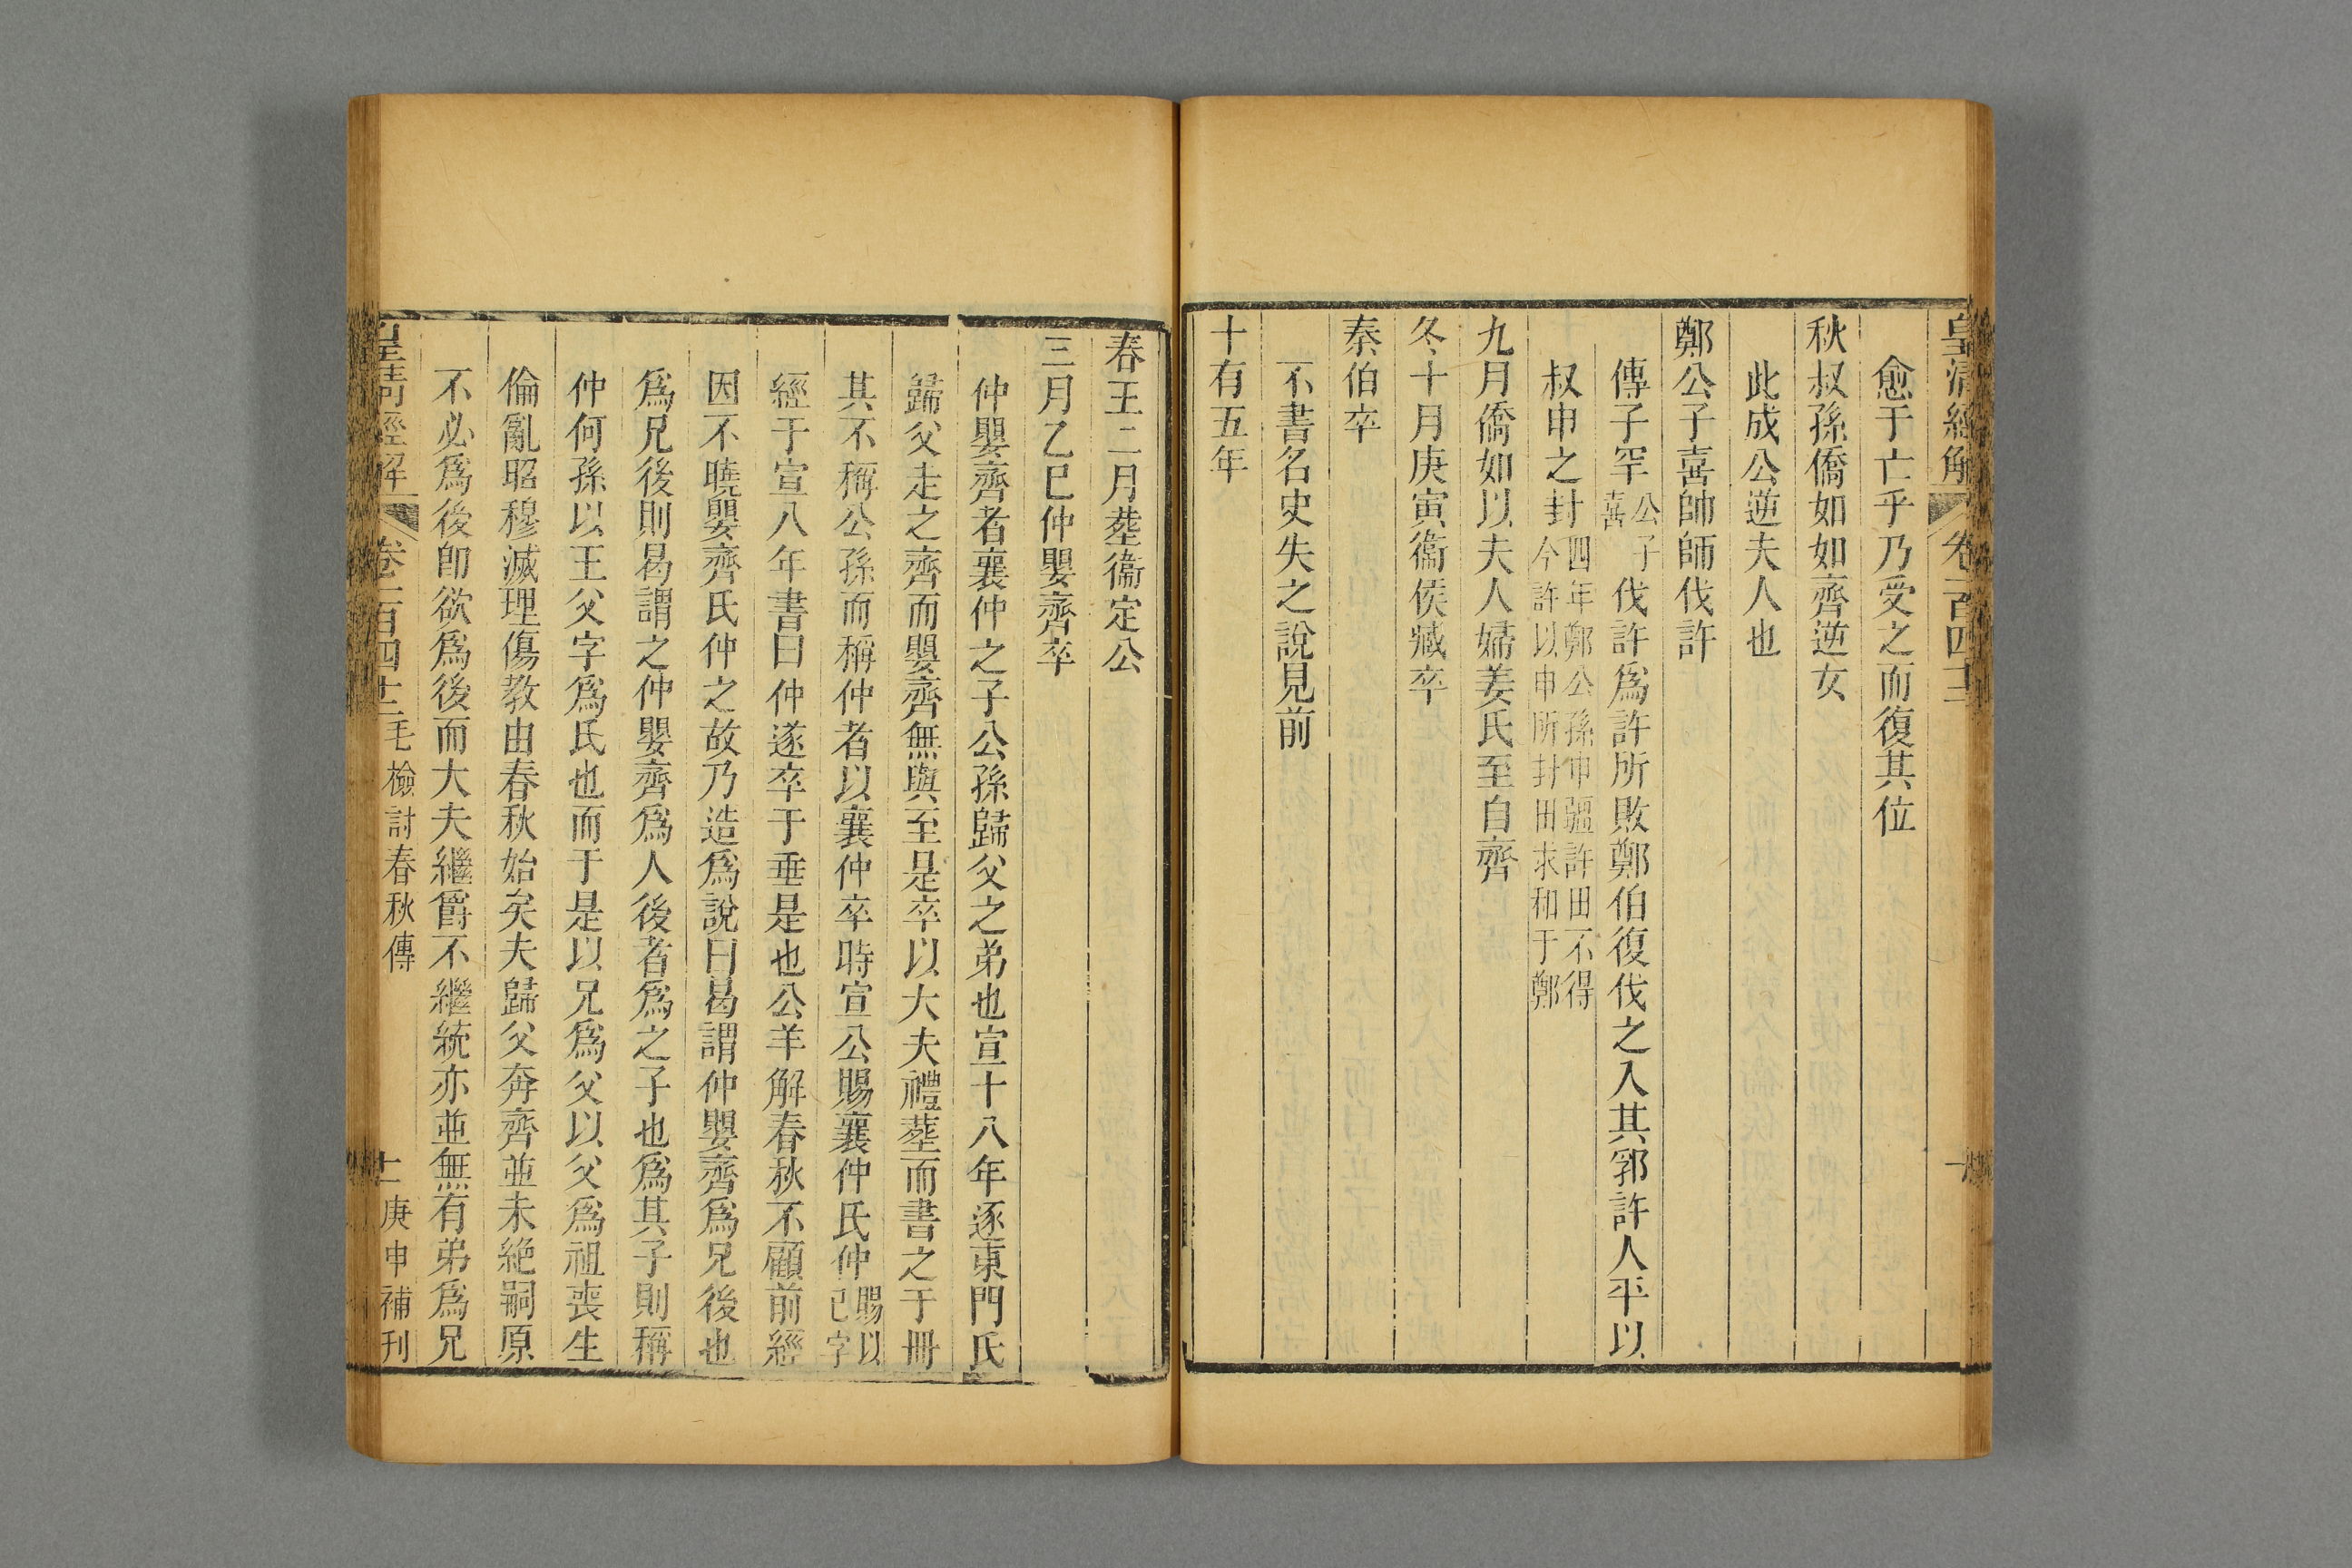 皇清經解 卷一百四十二 一
愈于亡乎乃受之而復其位
秋叔孫僑如如齊逆女
此成公逆夫人也
鄭公子喜帥師伐許
傳子罕公子喜伐許爲許所敗鄭伯復伐之入其郛許人平以
叔申之封四年鄭公孫申疆許田不得今許以申所封田求和于鄭
九月僑如以夫人婦姜氏至自齊
冬十月庚寅衞侯臧卒
秦伯卒
不書名史失之說見前
十有五年
春王二月葬衞定公
三月乙巳仲嬰齊卒
仲嬰齊者襄仲之子公孫歸父之弟也宣十八年逐東門氏
歸父走之齊而嬰齊無與至是卒以大夫禮葬而書之于冊
其不稱公孫而稱仲者以襄仲卒時宣公賜襄仲氏仲賜以已字
經于宣八年書曰仲遂卒于垂是也公羊解春秋不顧前經
因不曉嬰齊氏仲之故乃造爲說曰曷謂仲嬰齊爲兄後也
爲兄後則曷謂之仲嬰齊爲人後者爲之子也爲其子則稱
仲何孫以王父字爲氏也而于是以兄爲父以父爲祖喪生
倫亂昭穆滅理傷教由春秋始矣夫歸父奔齊並未絶嗣原
不必爲後即欲爲後而大夫繼爵不繼統亦並無有弟爲兄
皇清經解 卷一百四十二 毛檢討春秋傳 二 庚申補刊